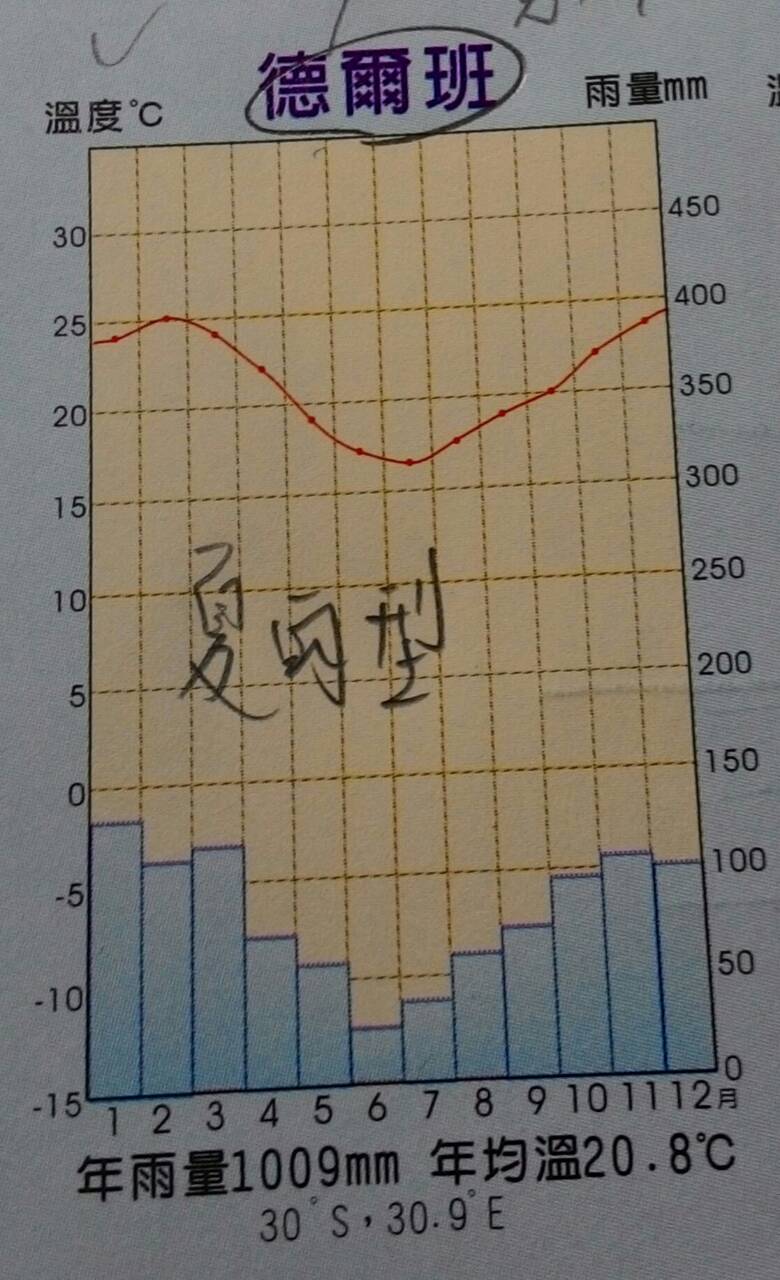 德爾班
溫度℃
雨量mm
30
25
20
15
10
5
0
-5
-10
-15
450
400
350
300
250
200
150
100
50
0
夏雨型
1 2 3 4 5 6 7 8 9 10 11 12月
年雨量1009mm 年均溫20.8℃
30°S，30.9°E